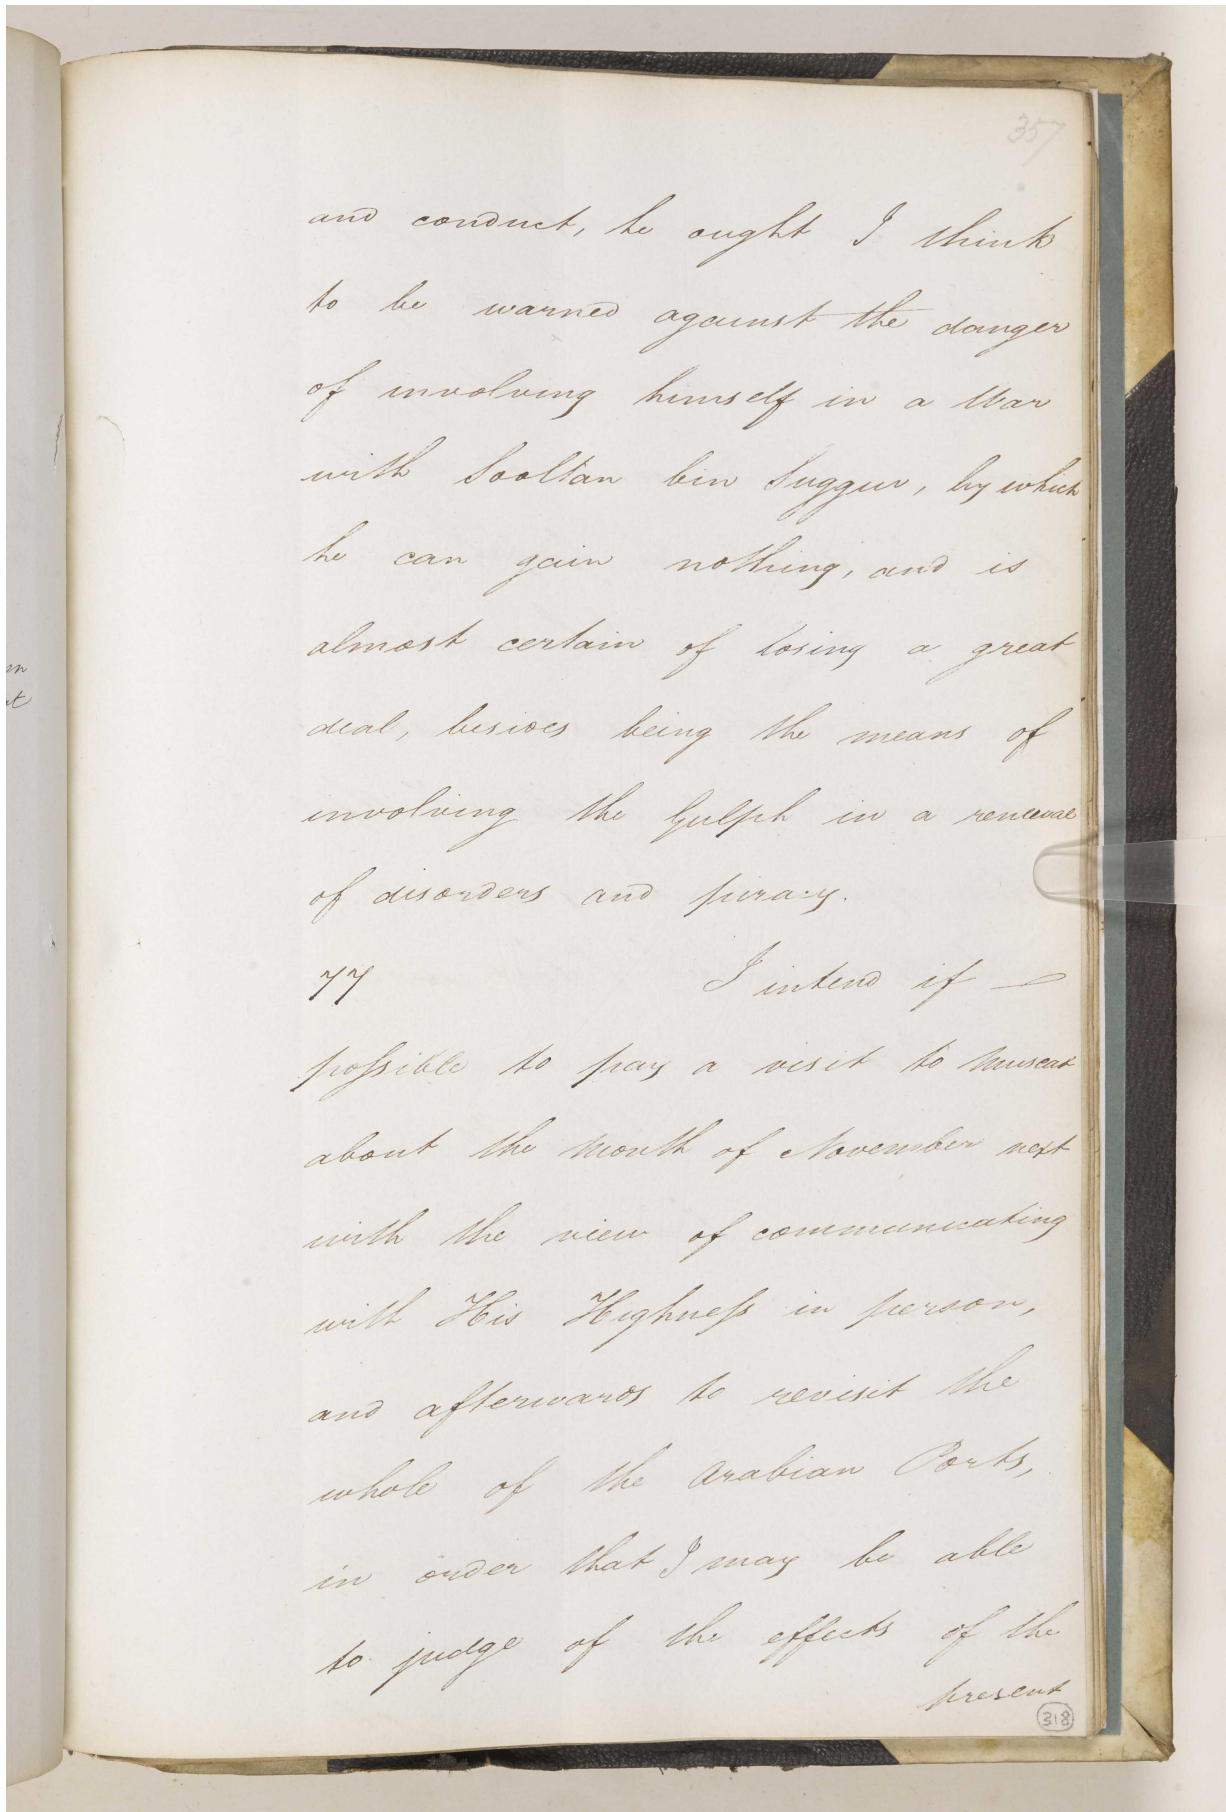 357
and conduct, he ought I think
to be warned against the danger
of involving himself in a War
with Sooltan bin Suggur, by which
he can gain nothing, and is
almost certain of losing a great
deal, besides being the means of
involving the Gulph in a renewal
of disorders and piracy.
77 I intend if —
possible to pay a visit to Muscat
about the Month of November next
with the view of communicating
with His Highness in person,
and afterwards to revisit the
whole of the Arabian Ports,
in order that I may be able
to judge of the effects of the
present
318